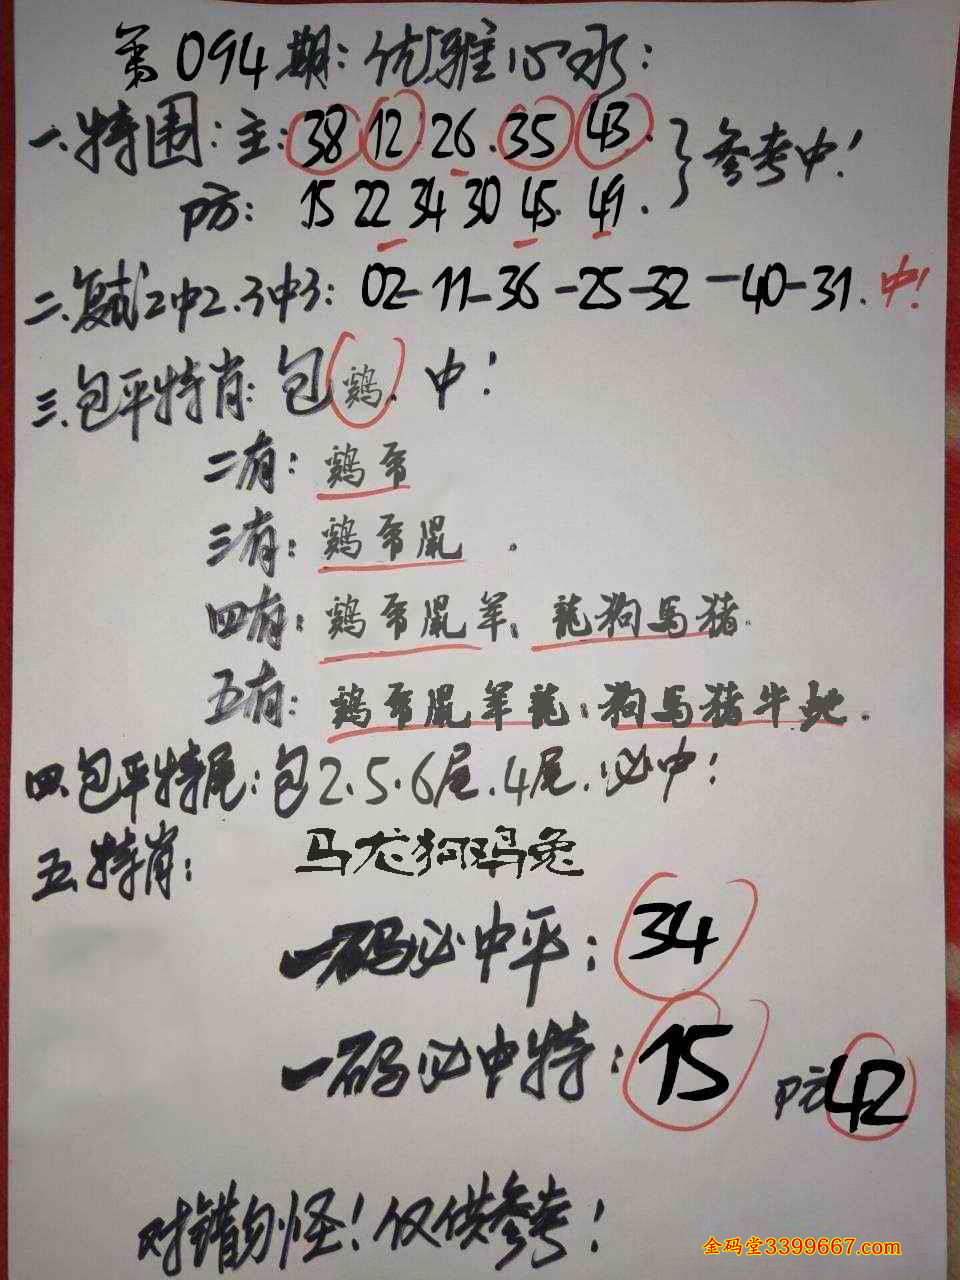 第094期：优雅心水：
一、特围：主：38 12 26.35 43. 参考中！
防：15 22 34 30 45. 49.
二、复试2中2.3中3：02-11-36-25-32-40-31.中！
三、包平特肖：包鸡.中！
二有：鸡帝
三有：鸡帝鼠.
四有：鸡帝鼠羊、龍狗馬猪.
五有：鸡帝鼠羊龍；狗馬猪牛地.
四.包平特尾：包2.5.6尾.4尾.必中！
五.特肖：马龙狗鸡兔
一码必中平：34
一码必中特：15 防42
对错勿怪！仅供参考！
金码堂3399667.com